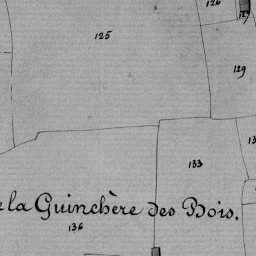 126
127
125
129
133
la Guinchère des Bois.
136